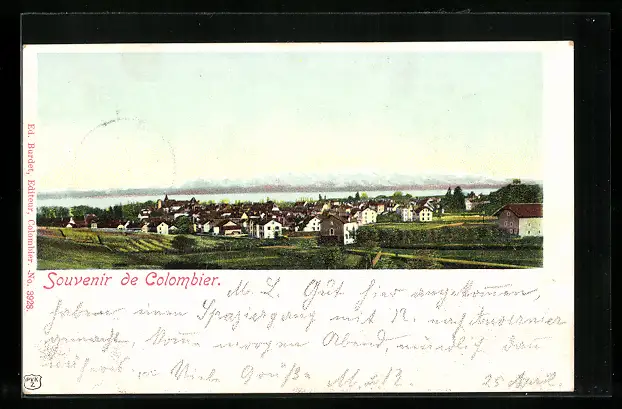 Ed. Burdet, Editeur, Colombier. No. 3928
Souvenir de Colombier.
M. L. Gut hier angekommen,
haben einen Spaziergang mit N. nach Auvernier
gemacht, komme morgen Abend, mündlich dann
näheres. Viele Grüße M. 25 April
PVK
Z